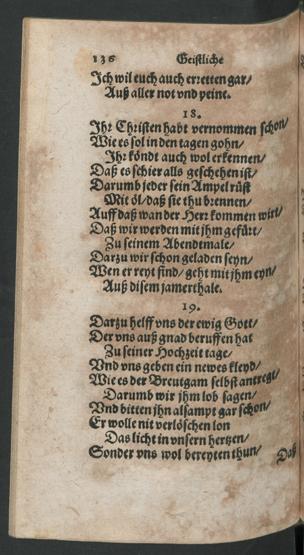 136 Geistliche
Ich wil euch auch erretten gar/
Auß aller not vnd peine.
18.
Ihr Christen habt vernommen schon/
Wie es sol in den tagen gohn/
Ihr köndt auch wol erkennen/
Daß es schier alls geschehen ist/
Darumb jeder sein Ampel rüst
Mit öl/ daß sie thu brennen/
Auff daß wan der Herr kommen wirt/
Daß wir werden mit jhm gefürt/
Zu seinem Abendtmale/
Darzu wir schon geladen seyn/
Wen er reyt find/ geht mit jhm eyn/
Auß disem jamerthale.
19.
Darzu helff vns der ewig Gott/
Der vns auß gnad beruffen hat
Zu seiner Hochzeit tage/
Vnd vns geben ein newes kleyd/
Wie es der Breutgam selbst antregt/
Darumb wir jhm lob sagen/
Vnd bitten jhn alsampt gar schon/
Er wolle nit verlöschen lon
Das licht in vnsern hertzen/
Sonder vns wol bereyten thun/
Daß